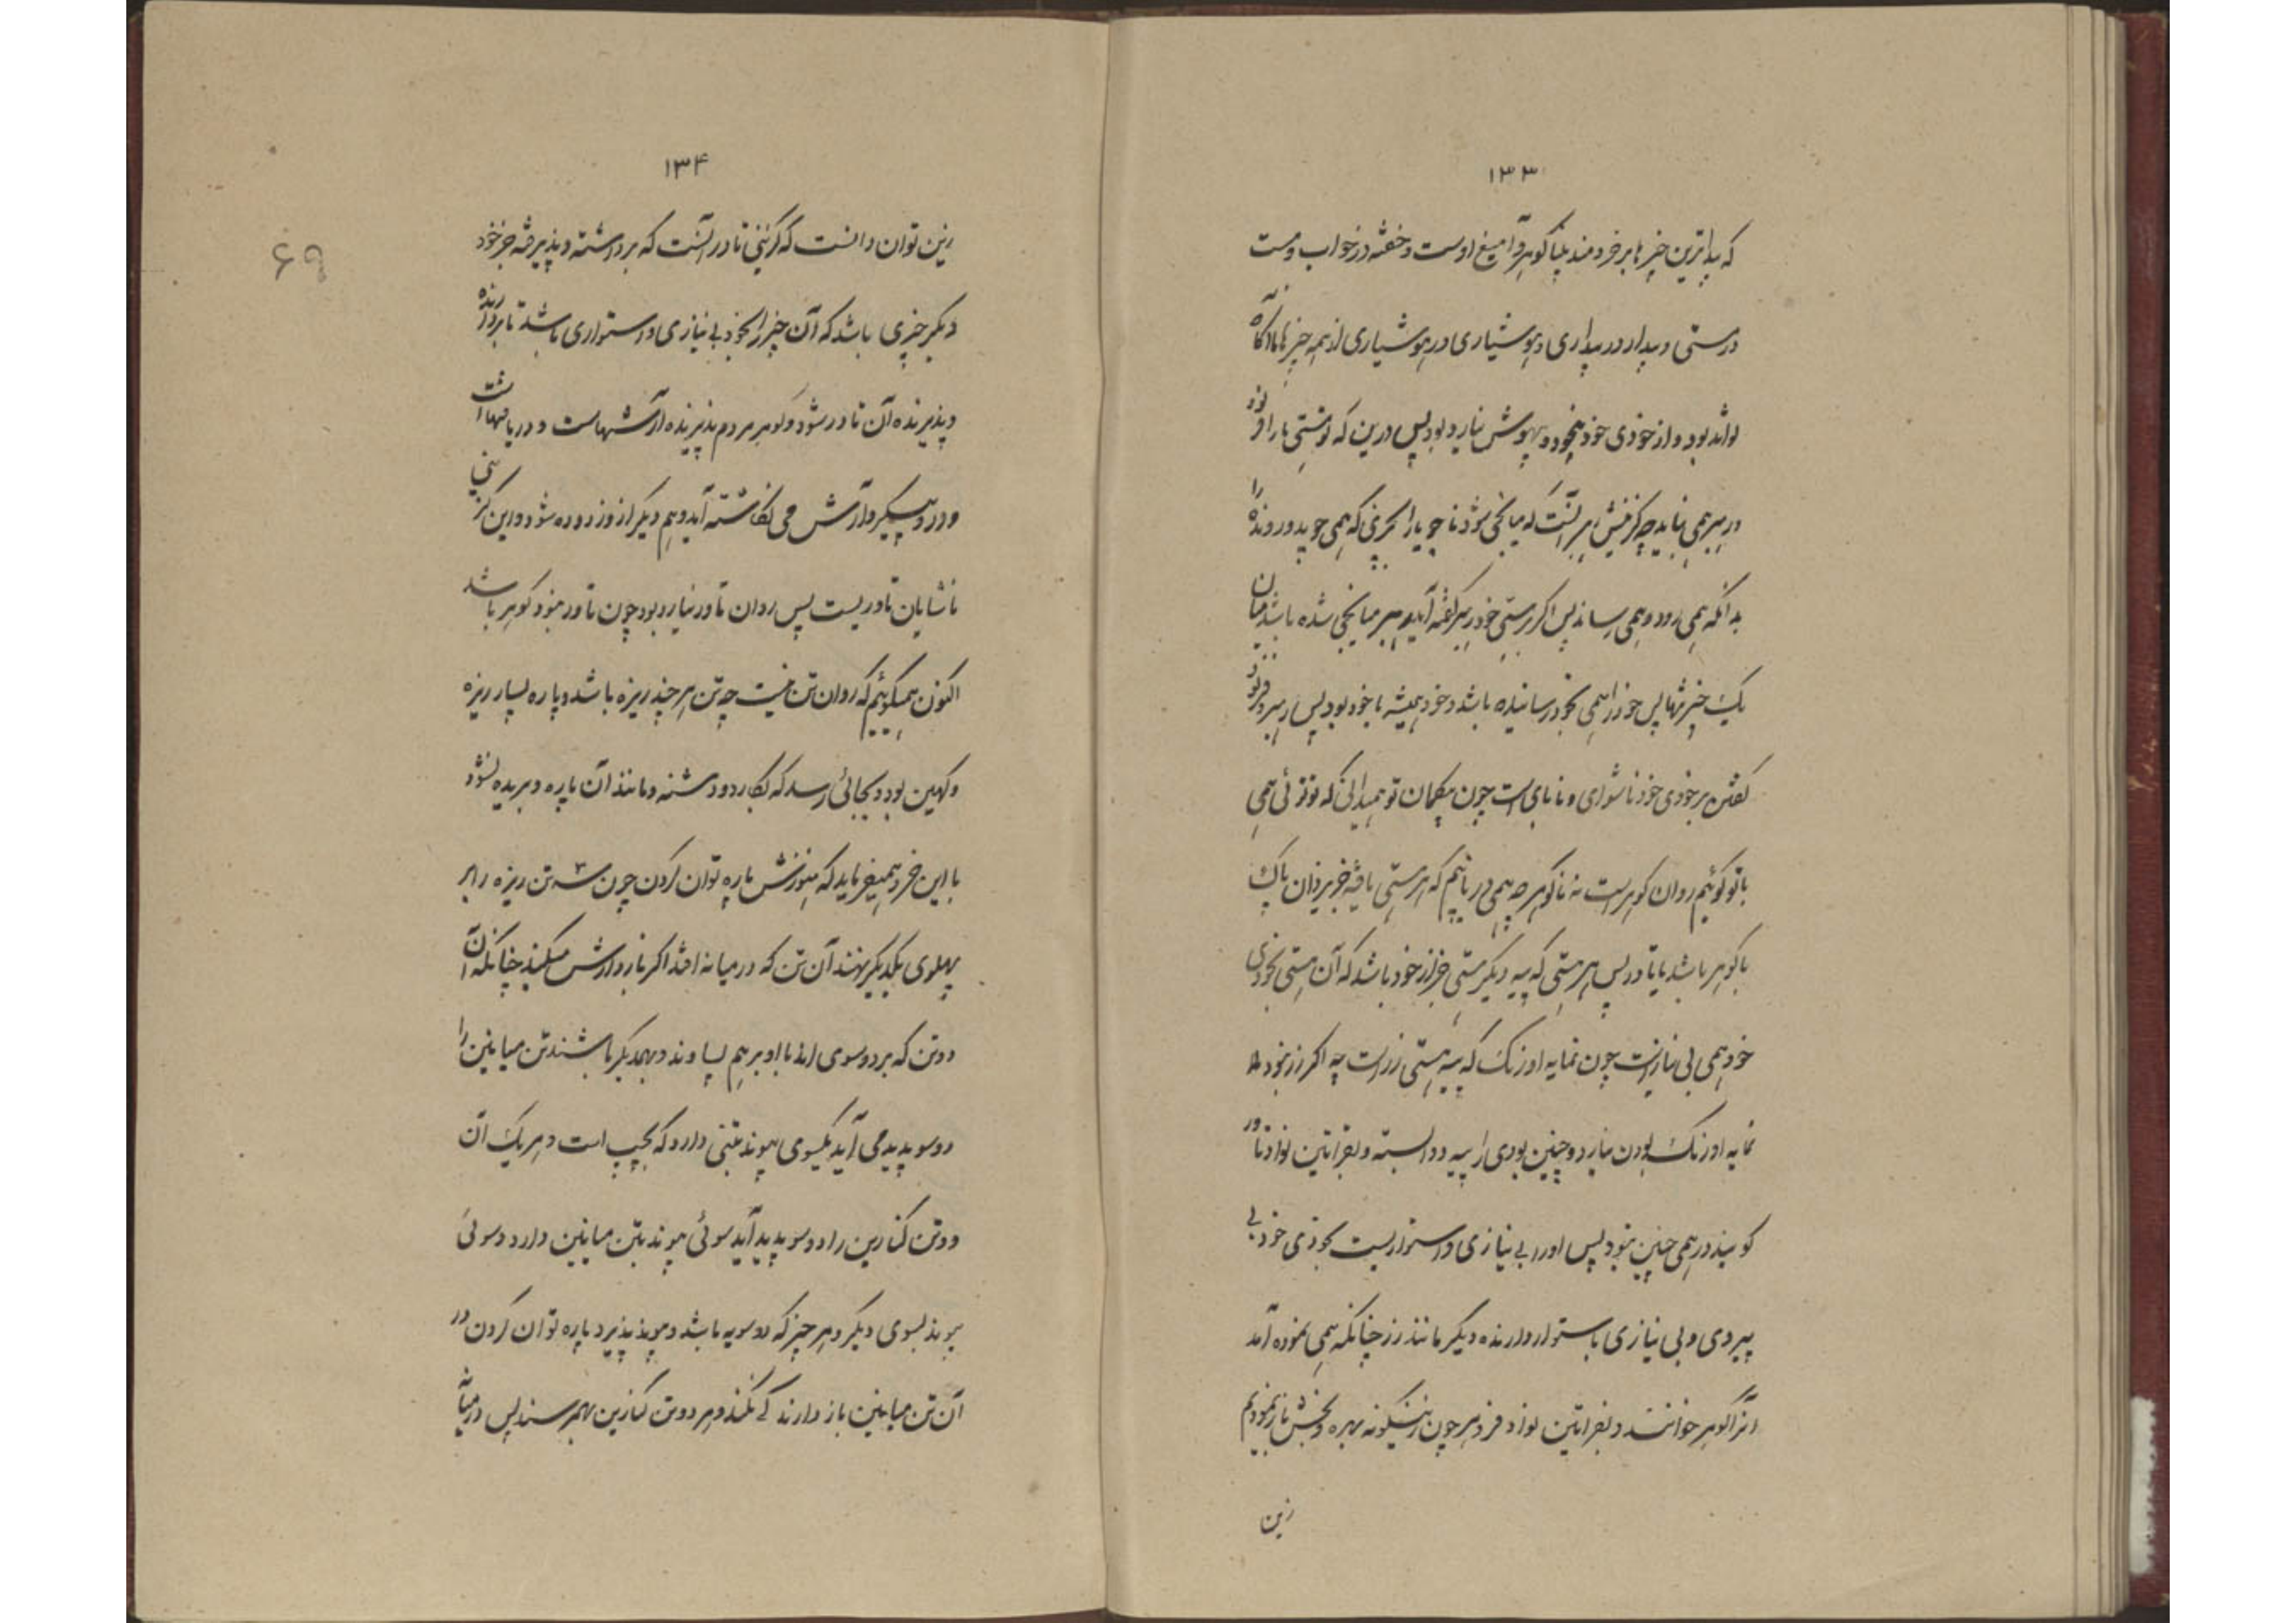 ۱۳۳
که پیداترین چیزها بر خردمند بینا گوهر و آمیغ اوست و خفته در خواب و مست
در مستی و بیدار در بیداری و هوشیاری در هوشیاری از همه چیزها ناآگاه
تواند بود و از خودی خود بیخود و بیهوش نیارد بود پس درین که توستی ما را
رهبر همی نباید چه کزفیش رهبر آنست که میانجی شود تا جویا را بچیزی که همی جوید و رونده را
بدانکه همی رود و همی رساند پس اگر بر هستی خود رهبر گفته آید رهبر میانجی شده باشد میان
یک چیز تنها پس خود را همی بخود رسانیده باشد و خود همیشه با خود بود پس رهبر و فرنود
گفتن بر خودی خود ناشوای و نابای است چون بیگمان تو همیدانی که تو توئی همی
با تو گوئیم روان گوهر است نه ناگوهر چه همی دریابیم که هر هستی یافته جز یزدان پاک
یا گوهر باشد یا تاور پس هر هستی که پیه دیگر هستی جز از خود باشد که آن هستی بخودی
خود همی بی نیاز است چون نمایه اورنگ که پیه هستی زر است چه اگر زر نبود
نمایه اورنگ بودن نیارد و چنین بودی را پیه و وابسته و بفراتین نواد تاور
گویند و هر همی چنین نبود پس او را بی نیازی و استواریست بخودی خود بی
پیروی و بی نیازی با استوار دارنده دیگر مانند زر چنانکه همی نموده آمد
آنرا گوهر خوانند و بفراتین نواد فروهر چون اینگونه بهره و بخش باز نمودیم
زین
۱۳۴
زین توان دانست که گزینی تاور آنست که برداشته و پذیرفته جز خود
دیگر چیزی باشد که آن چیز را بخود بی نیازی و استواری باشد تا بردارنده
و پذیرنده آن تاور شود و گوهر مردم پذیرنده آرشهاست و دریافتهاست
و در و پیکر و آرش می نگاشته آید و هم دیگر از و زدوده شود و این گزینی
ناشایان تاوریست پس روان تاور نیارد بود چون تاور نبود گوهر باشد
اکنون همیگوئیم که روان تن نیست چه تن هر چند ریزه باشد و پاره بسیار ریزه
و کهین بود و بجائی رسد که بکارد و دشنه و مانند آن پاره و بریده نشود
با این خرد همیفرماید که هنوزش پاره توان کردن چون سه تن ریزه را بر
پهلوی یکدیگر نهند آن تن که در میانه افتد اگر باز دارش میکند چنانکه آن
دو تن که بر دو سوی اند با او بر هم بساوند و بهمدیگر باشند تن میانین را
دو سو پدید می آید یکسوی پیوند بتنی دارد که بچپ است و هر یک آن
دو تن کنارین را دو سو پدید آید سوئی پیوند بتن میانین دارد و سوئی
پیوند بسوی دیگر و هر چیز که دو سویه باشد و پیوند پذیرد پاره توان کردن ور
آن تن میانین باز دارندگی نکند و هر دو تن کنارین بهم رسند پس در میانه
۶۹